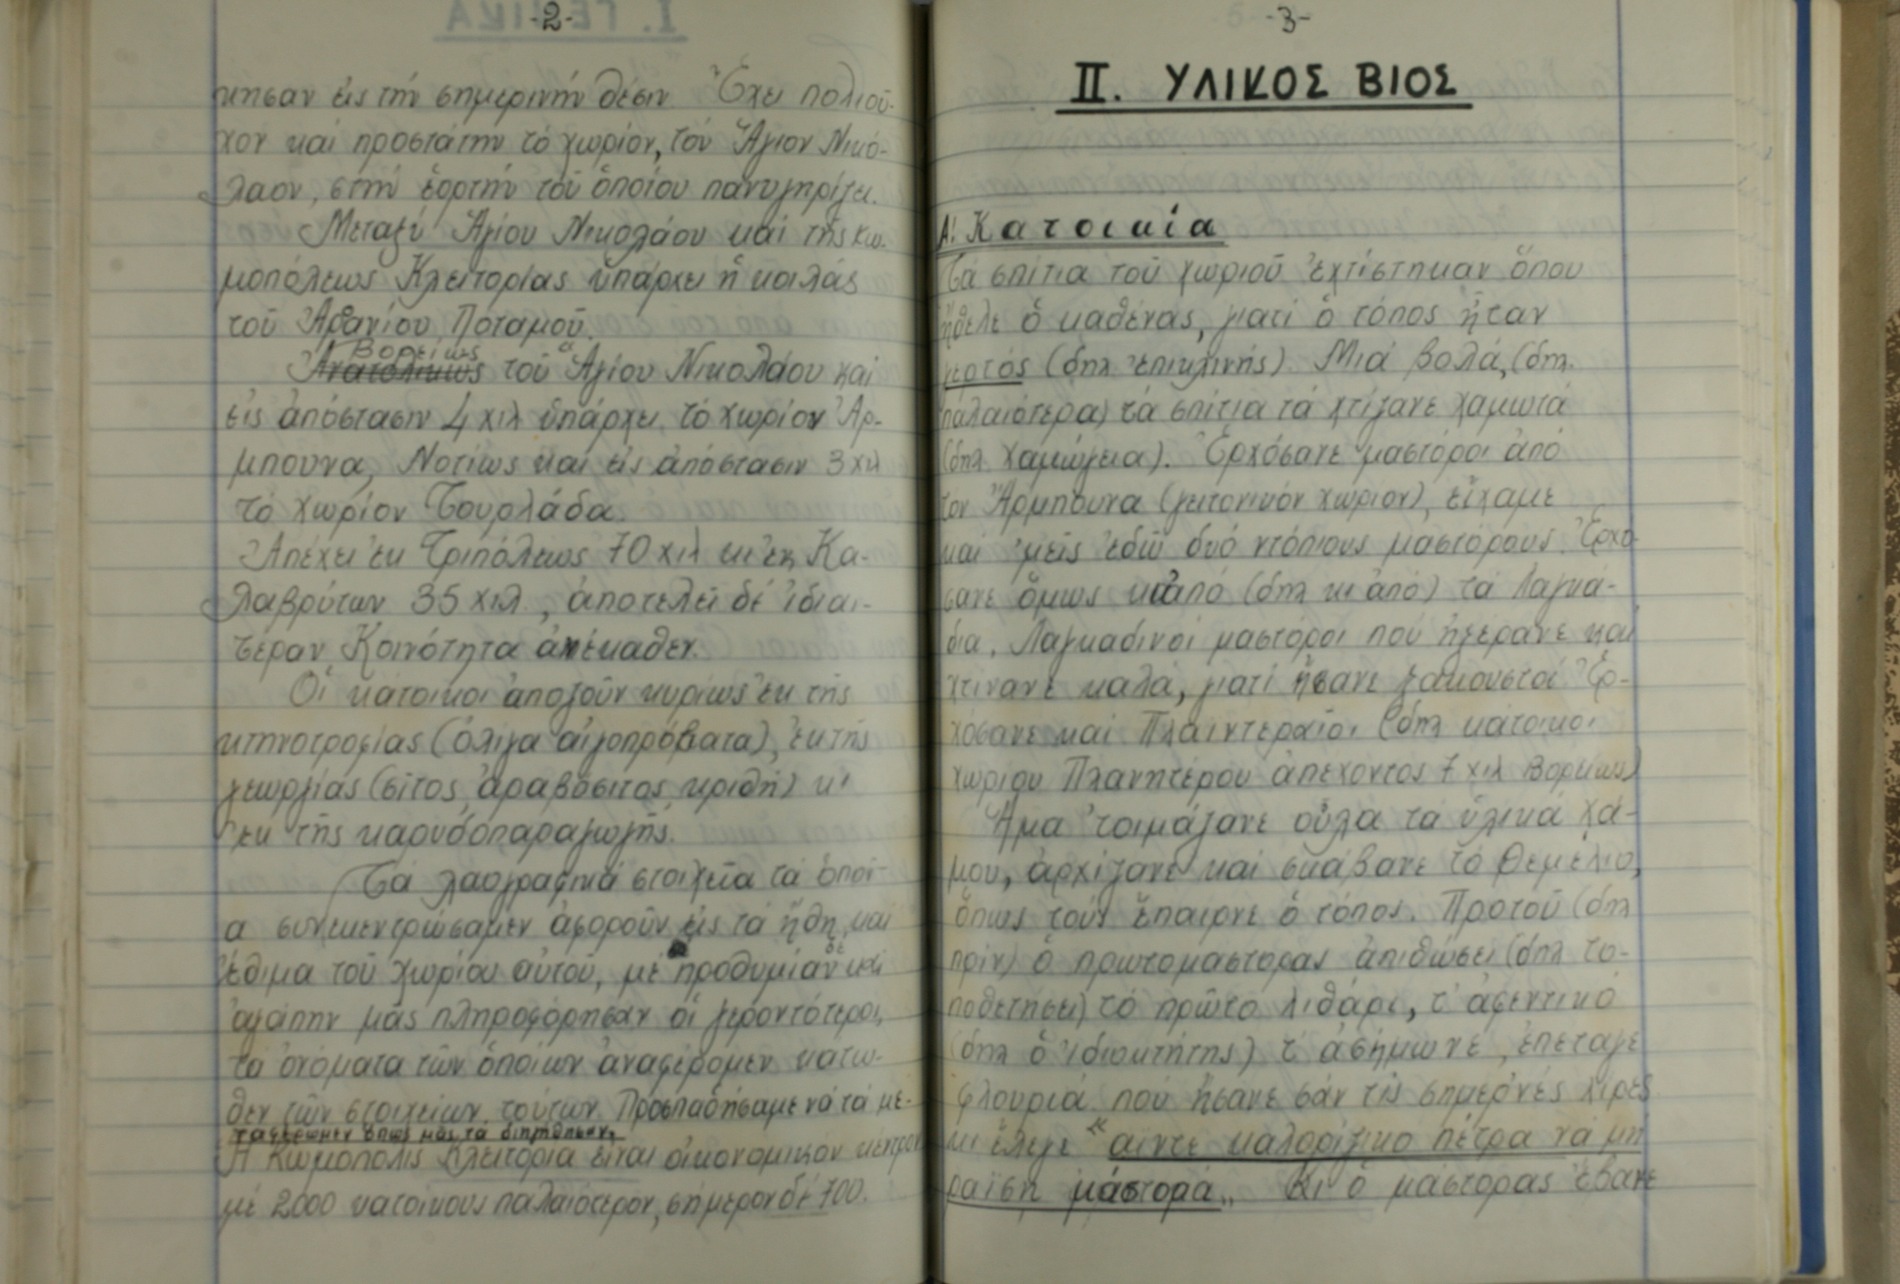 -2-
κησαν εἰς τήν σημερινήν θέσιν. Ἔχει πολιοῦ-
χον καί προστάτην τό χωρίον, τόν Ἅγιον Νικό-
λαον, στήν ἑορτήν τοῦ ὁποίου πανυγηρίζει.
Μεταξύ Ἁγίου Νικολάου καί τῆς κω-
μοπόλεως Κλειτορίας ὑπάρχει ἡ κοιλάς
τοῦ Ἀροανίου Ποταμοῦ.
Βορείως
Ἀνατολικῶς τοῦ Ἁγίου Νικολάου καί
εἰς ἀπόστασιν 4 χιλ ὑπάρχει τό χωρίον Ἀρ-
μπουνα, Νοτίως καί εἰς ἀπόστασιν 3 χιλ
τό χωρίον Τουρλάδα.
Ἀπέχει ἐκ Τριπόλεως 70 χιλ κι' ἐκ Κα-
λαβρύτων 35 χιλ., ἀποτελεῖ δέ ἰδιαι-
τέραν Κοινότητα ἀνέκαθεν.
Οἱ κάτοικοι ἀποζοῦν κυρίως ἐκ τῆς
κτηνοτροφίας (ὀλίγα αἰγοπρόβατα), ἐκ τῆς
γεωργίας (σῖτος, ἀραβόσιτος, κριθή) κι'
ἐκ τῆς καρυδοπαραγωγῆς.
Τά λαογραφικά στοιχεῖα τά ὁποῖ-
α συνεκεντρώσαμεν ἀφοροῦν εἰς τά ἤθη καί
ἔθιμα τοῦ χωρίου αὐτοῦ, μέ προθυμίαν δέ καί
ἀγάπην μᾶς πληροφόρησαν οἱ γεροντότεροι,
τά ὀνόματα τῶν ὁποίων ἀναφέρομεν κατω-
θεν τῶν στοιχείων τούτων. Προσπαθήσαμε νά τά με-
ταφέρωμεν ὅπως μας τά διηγήθησαν.
Ἡ Κωμόπολις Κλειτορία εἶναι οἰκονομικόν κέντρον
μέ 2000 κατοίκους παλαιότερον, σήμερον δέ 700.
-3-
II. ΥΛΙΚΟΣ ΒΙΟΣ
Α'. Κατοικία
Τά σπίτια τοῦ χωριοῦ ἐχτίστηκαν ὅπου
ἤθελε ὁ καθένας, γιατί ὁ τόπος ἦταν
γερτός (δηλ ἐπικλινής). Μιά βολά, (δηλ.
παλαιότερα) τά σπίτια τά χτίζανε χαμωτά
(δηλ χαμώγεια). Ἐρχόσανε μαστόροι ἀπό
τον Ἄρμπουνα (γειτονικόν χωριον), εἴχαμε
καί 'μεῖς ἐδῶ δυό ντόπιους μαστόρους. Ἐρχό-
σανε ὅμως κιἀπό (δηλ κι ἀπό) τά Λαγκά-
δια. Λαγκαδινοί μαστόροι πού ἠξερανε καί
χτίνανε καλά, γιατί ἤσανε ξακουστοί. Ἐρ-
χόσανε καί Πλαιντεραῖοι (δηλ κάτοικοι
χωρίου Πλανητέρου ἀπέχοντος 7 χιλ Βορείως)
Ἅμα 'τοιμάζανε οὗλα τα ὑλικά χά-
μου, ἀρχίζανε καί σκάβανε τό θεμέλιο,
ὅπως τούς ἔπαιρνε ὁ τόπος. Προτοῦ (δηλ
πρίν) ὁ πρωτομάστορας ἀπιθώσει (δηλ το-
ποθετήσει) τό πρῶτο λιθάρι, τ' ἀφεντικό
(δηλ ὁ ἰδιοκτήτης) τ' ἀσήμωνε, ἐπεταγε
φλουριά πού ἤσανε σάν τίς σημερ'νές λίρες
κι ἔλεγε "αἵντε καλορίζικο πέτρα νά μή
ραΐση μάστορα„. Κι ὁ μάστορας ἔβανε